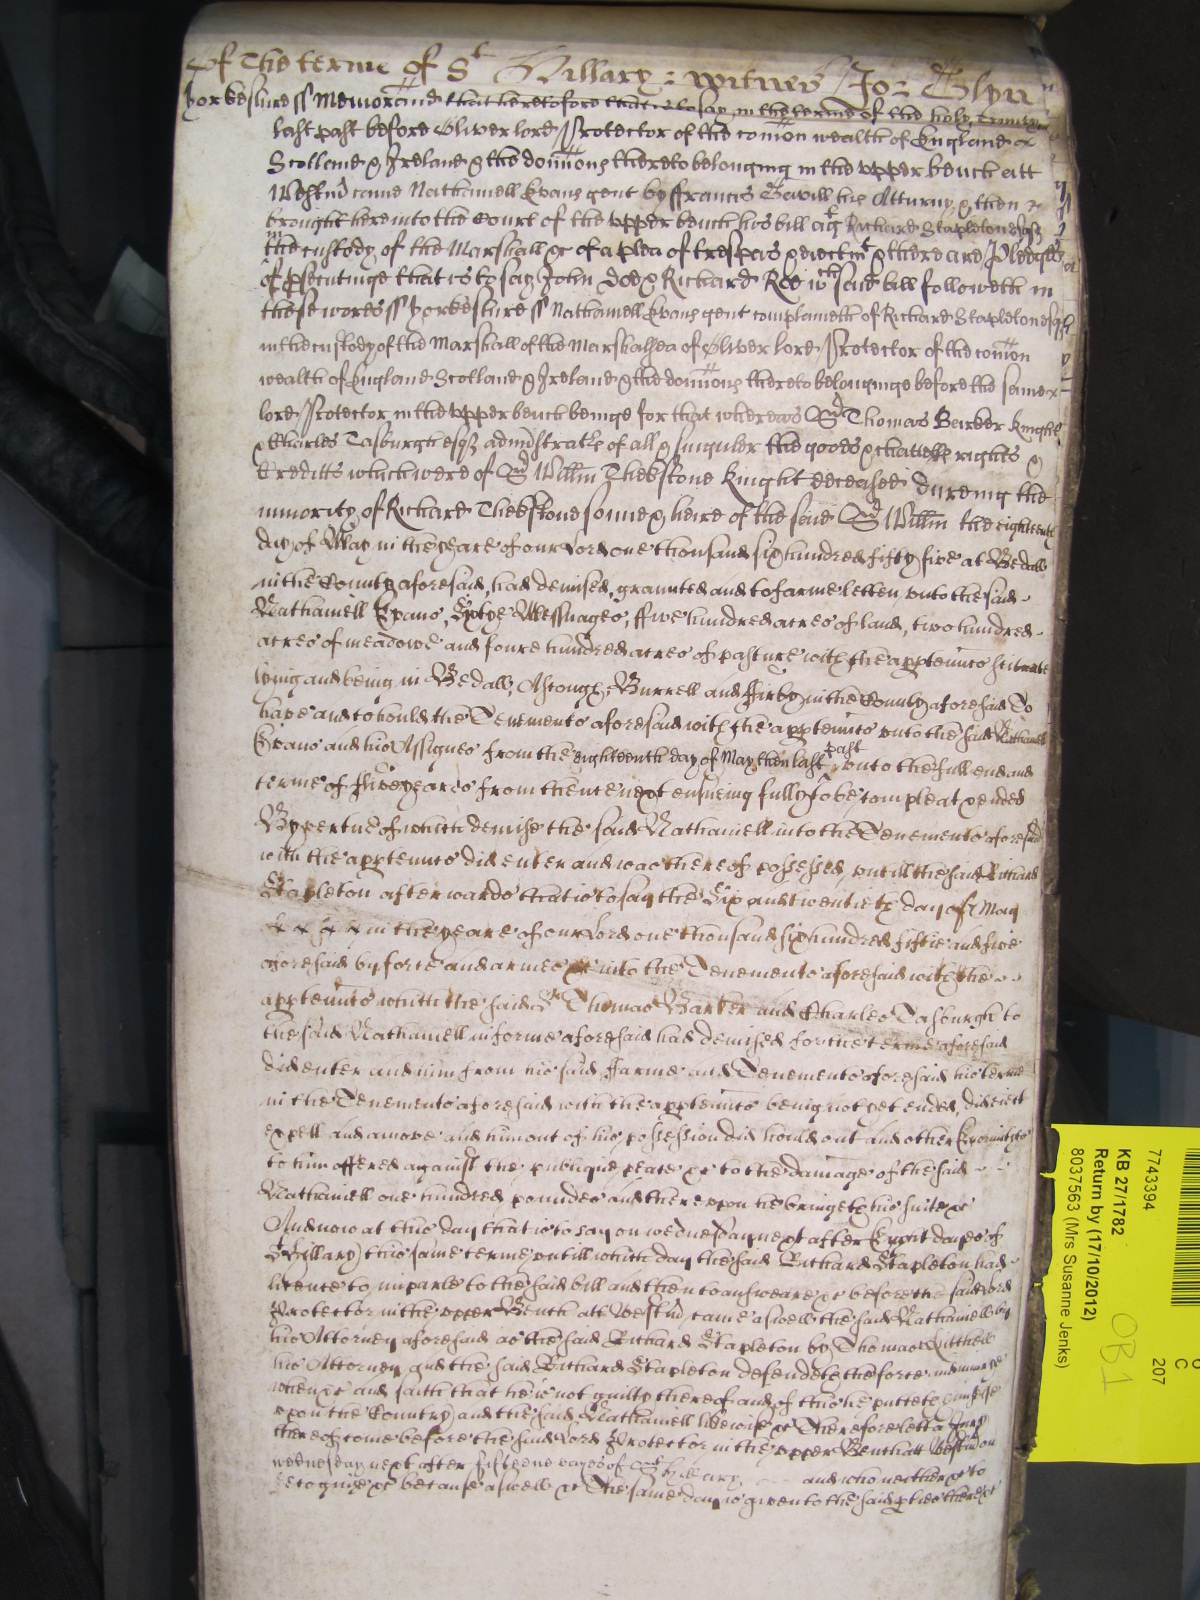 Of The terme of St Hillary : witnes Jo: Glyn
Yorkeshire ss Memorand that heretofore that is to say in the terme of the holy Trinity
last past before Oliver lord Protector of the comon wealth of England
Scotland & Ireland & the dominons thereto belonging in the upper bench att
Westmr came Nathaniell Evans gent by ffrancis Bevill his Atturny & then
brought here into the Court of the upper bench his bill agt Richard Stapleton esqr
in the custody of the Marshall &c of a plea of trespas & eiectmt & there are Pledges
of psecutinge that is to say John Doe & Richard Roe wch said bill followeth in
these wordes ss Yorkeshire ss Nathaniell Evans gent complaineth of Richard Stapleton esqr
in the custody of the Marshall of the Marshalsea of Oliver lord Protector of the comon
wealth of England Scotland & Ireland & the dominons thereto belonginge before the same
lord Protector in the upper bench beinge for that whereas Sr Thomas Barker knight
& Charles Tasburgh esqr administratrs of all & singuler the goods & chattells rightes &
Creditts which were of Sr Willm Thekstone knight deceased dureing the
minority of Richard Thekstone sonne & heire of the said Sr Willm the eighteenth
day of May in the yeare of our Lord one thousand six hundred fifty five at Bedall
in the County aforesaid, had demised, graunted and to farme letten, unto the said
Nathaniell Evans, Sixtye Messuages, ffive hundred acres of land, two hundred
acres of meadowe and foure hundred acres of pasture with the apptennces scituate
lying and being in Bedall, Ascough, Burrell and ffirby in the County aforesaid To
have and to hould the Tenements aforesaid with the apptennces unto the said Nathaniell
Evans and his Assignes from the eighteenth day of May then last past unto the full end and
terme of five yeares from thence next ensueing fully to be compleat & ended
By vertue of which demise the said Nathaniell into the Tenements aforesaid
with the apptennces did enter and was thereof possessed, untill the said Richard
Stapleton afterwards that is to say the Six and twentieth day of May
in the yeare of our Lord one thousand six hundred fiftie and five
aforesaid by force and armes &c into the Tenements aforesaid with the
apptennces which the said Sr Thomas Barker and Charles Tasburgh to
the said Nathaniell in forme aforesaid had demised for the terme aforesaid
did enter and him from his said ffarme and Tenements aforesaid his terme
in the Tenements aforesaid with the apptennces being not yet ended, did eiect
expell and amove and him out of his possession did hould out and other Enormities
to him offered against the publique peace &c to the damage of the said
Nathaniell one hundred poundes and thereupon he bringeth his suite &c
And now at this day that is to say on wednesday next after Eight dayes of
St Hillary this same terme untill which day the said Richard Stapleton had
licence to imparle to the said bill and then to answeare &c before the said Lord
Protector in the upper Bench att Westmr came aswell the said Nathaniell by
his Attorney aforesaid as the said Richard Stapleton by Thomas
his Attorney and the said Richard Stapleton defendeth the force and
when &c and saith that he is not guilty thereof and of this he putteth himselfe
upon the Country and the said Nathaniell likewise &c Therefore lett a Jury
thereof come before the said Lord Protector in the upper Bench att Westmr on
wednesday next after fifteene dayes of St hillary and who neither &c to
recognise &c because aswell &c The same day is given to the said pties there &c
7743394
KB 27/1782
Return by (17/10/2012)
8037563 (Mrs Susanne Jenks)
OB 1
C
207